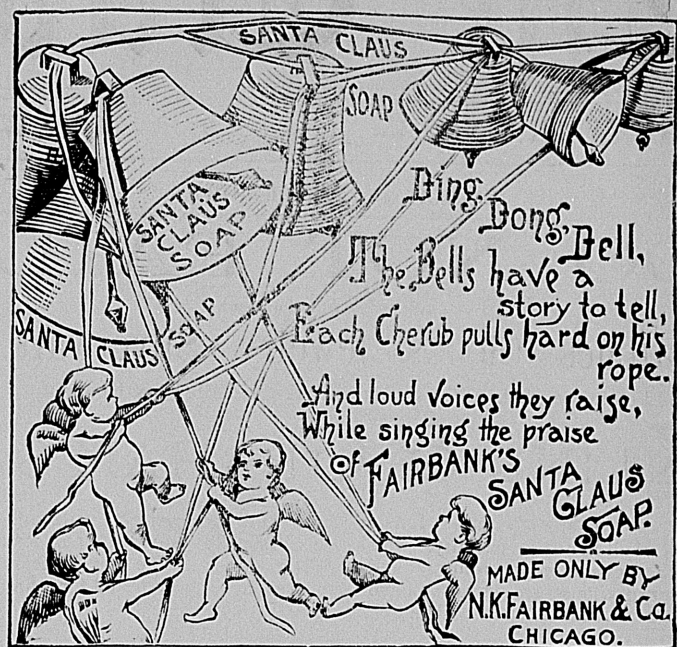 SANTA CLAUS
SOAP
SANTA
CLAUS
SOAP
SANTA CLAUS SOAP
Ding, Dong, Dell,
The Bells have a
story to tell,
Each Cherub pulls hard on his
rope.
And loud voices they raise,
While singing the praise
Of FAIRBANK'S
SANTA
CLAUS
SOAP.
MADE ONLY BY
N.K. FAIRBANK & Co.
CHICAGO.